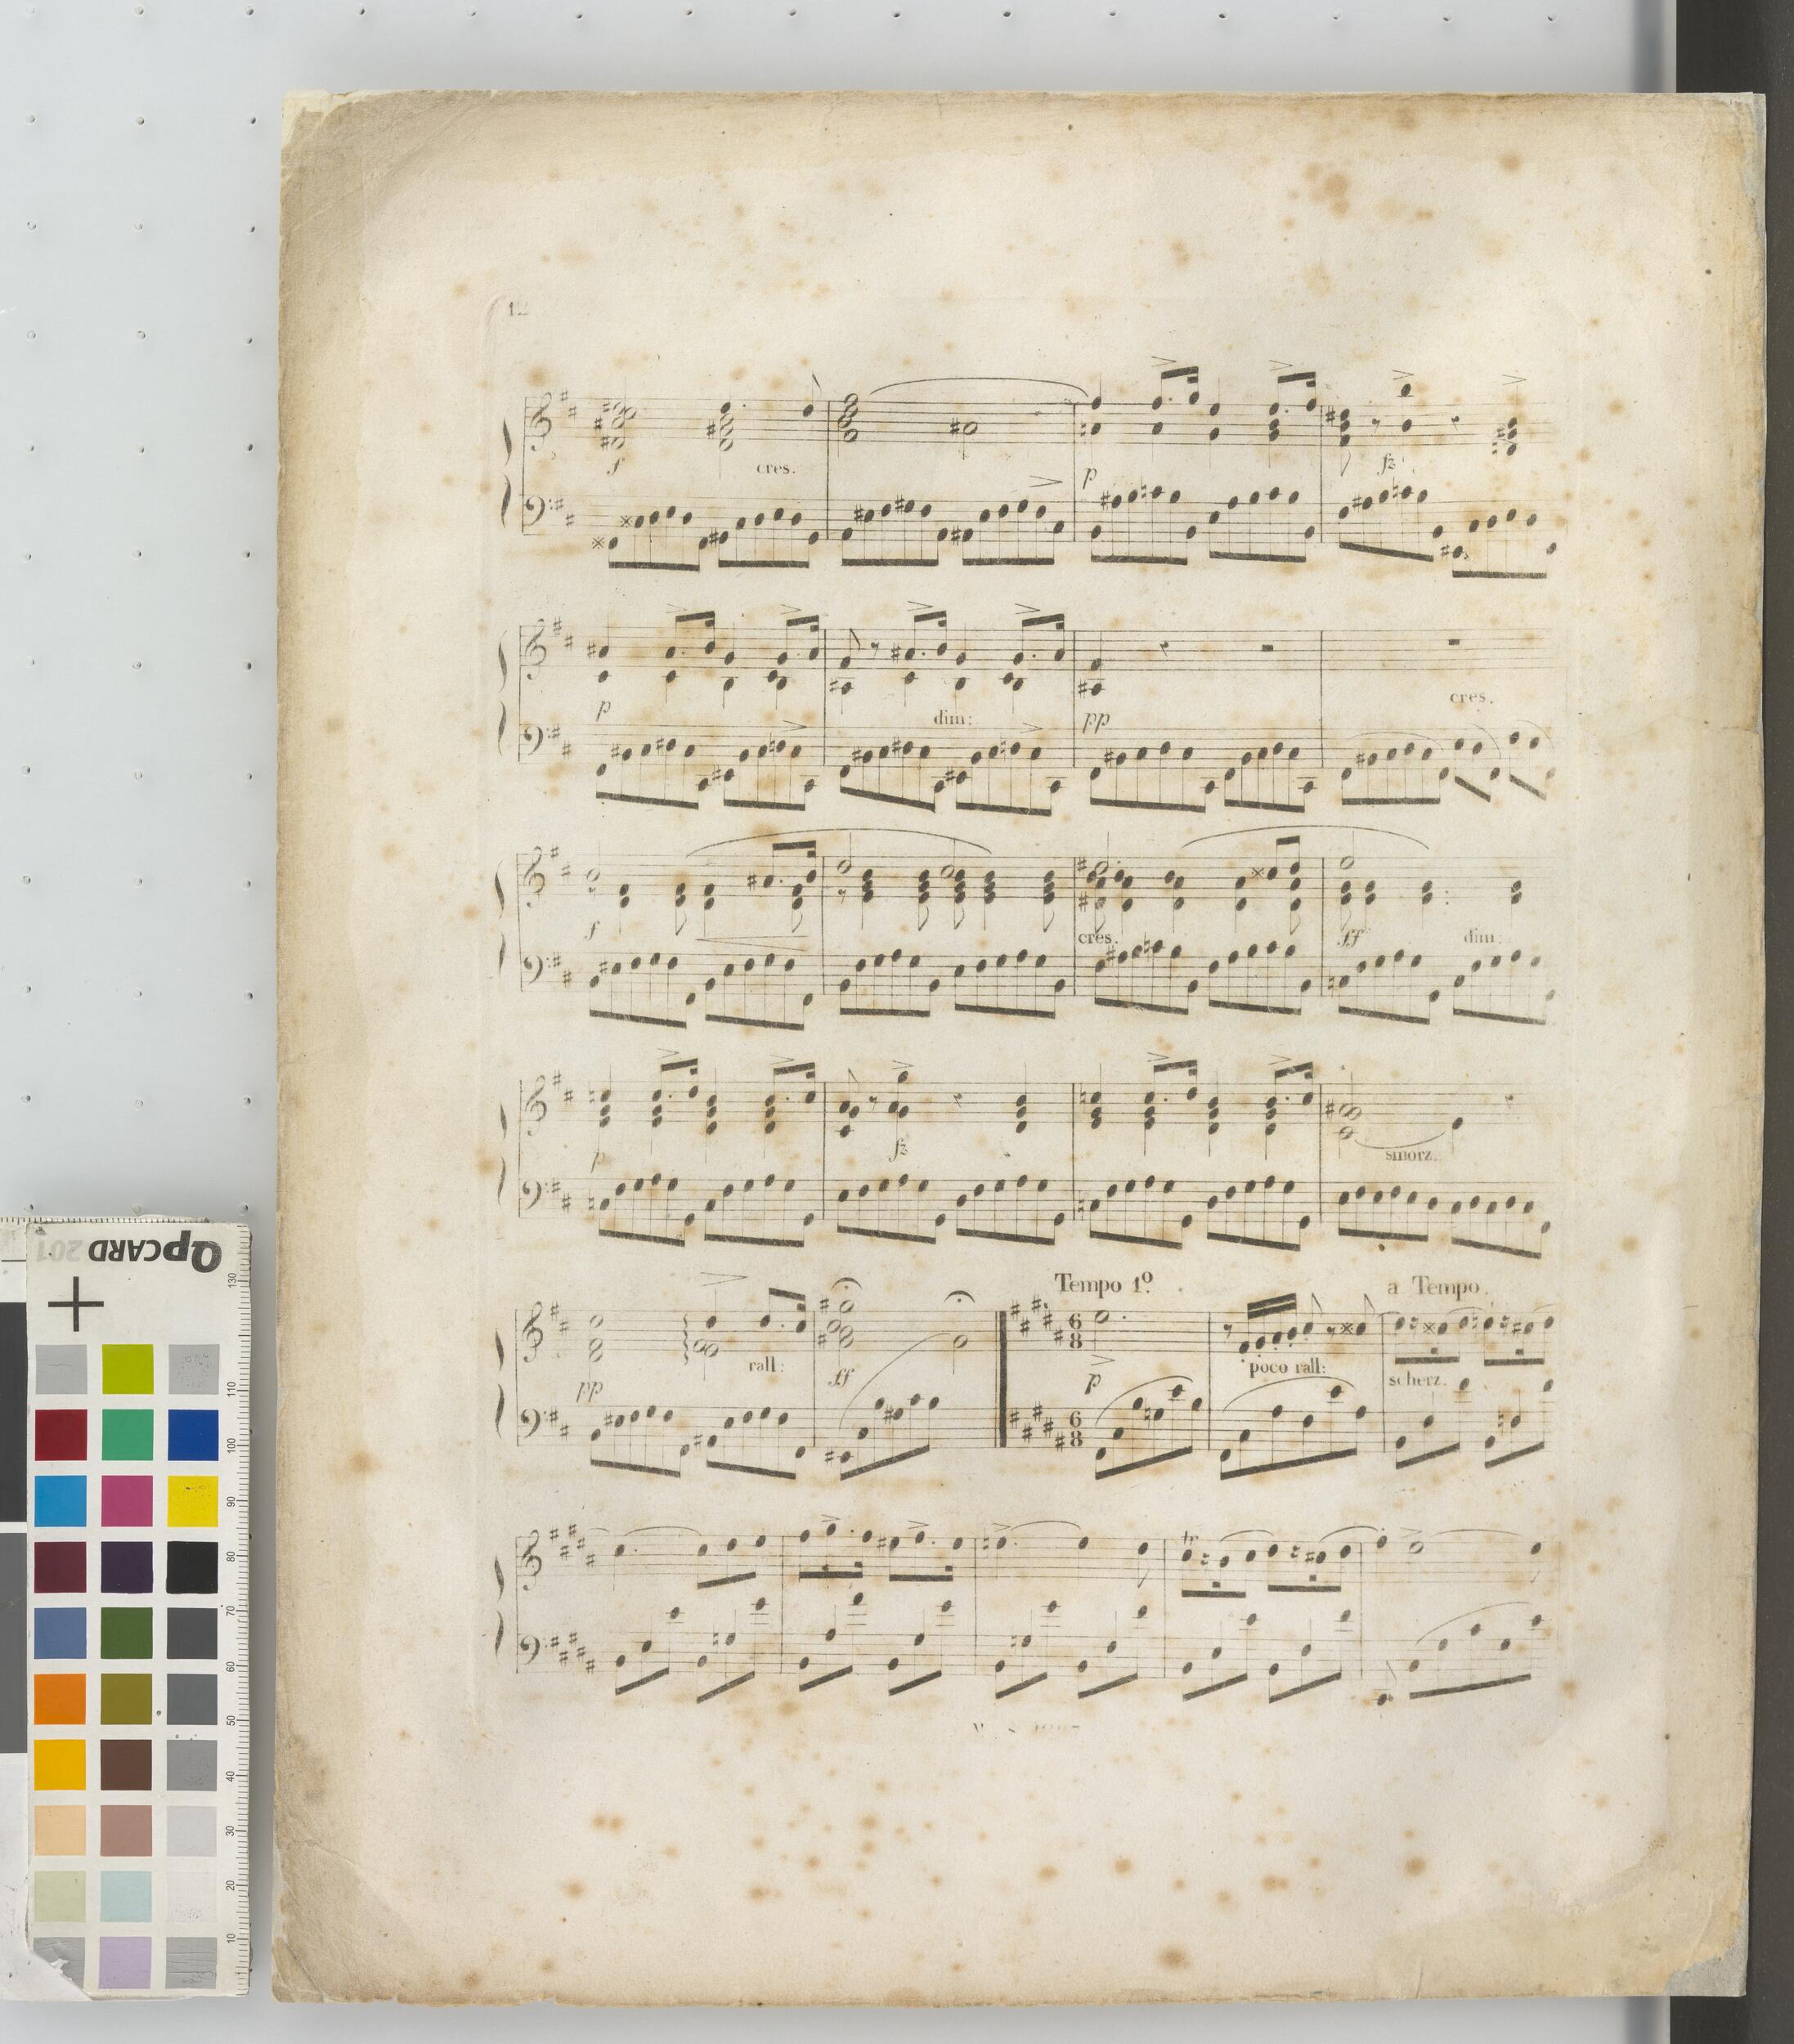 12
f cres. p fz
p dim: pp cres.
f cres. ff dim:
p fz smorz.
Tempo 1º. a Tempo.
pp rall: ff p poco rall: scherz.
6 8
6 8
tr
QPCARD 201
130
110
100
90
80
70
60
50
40
30
20
10